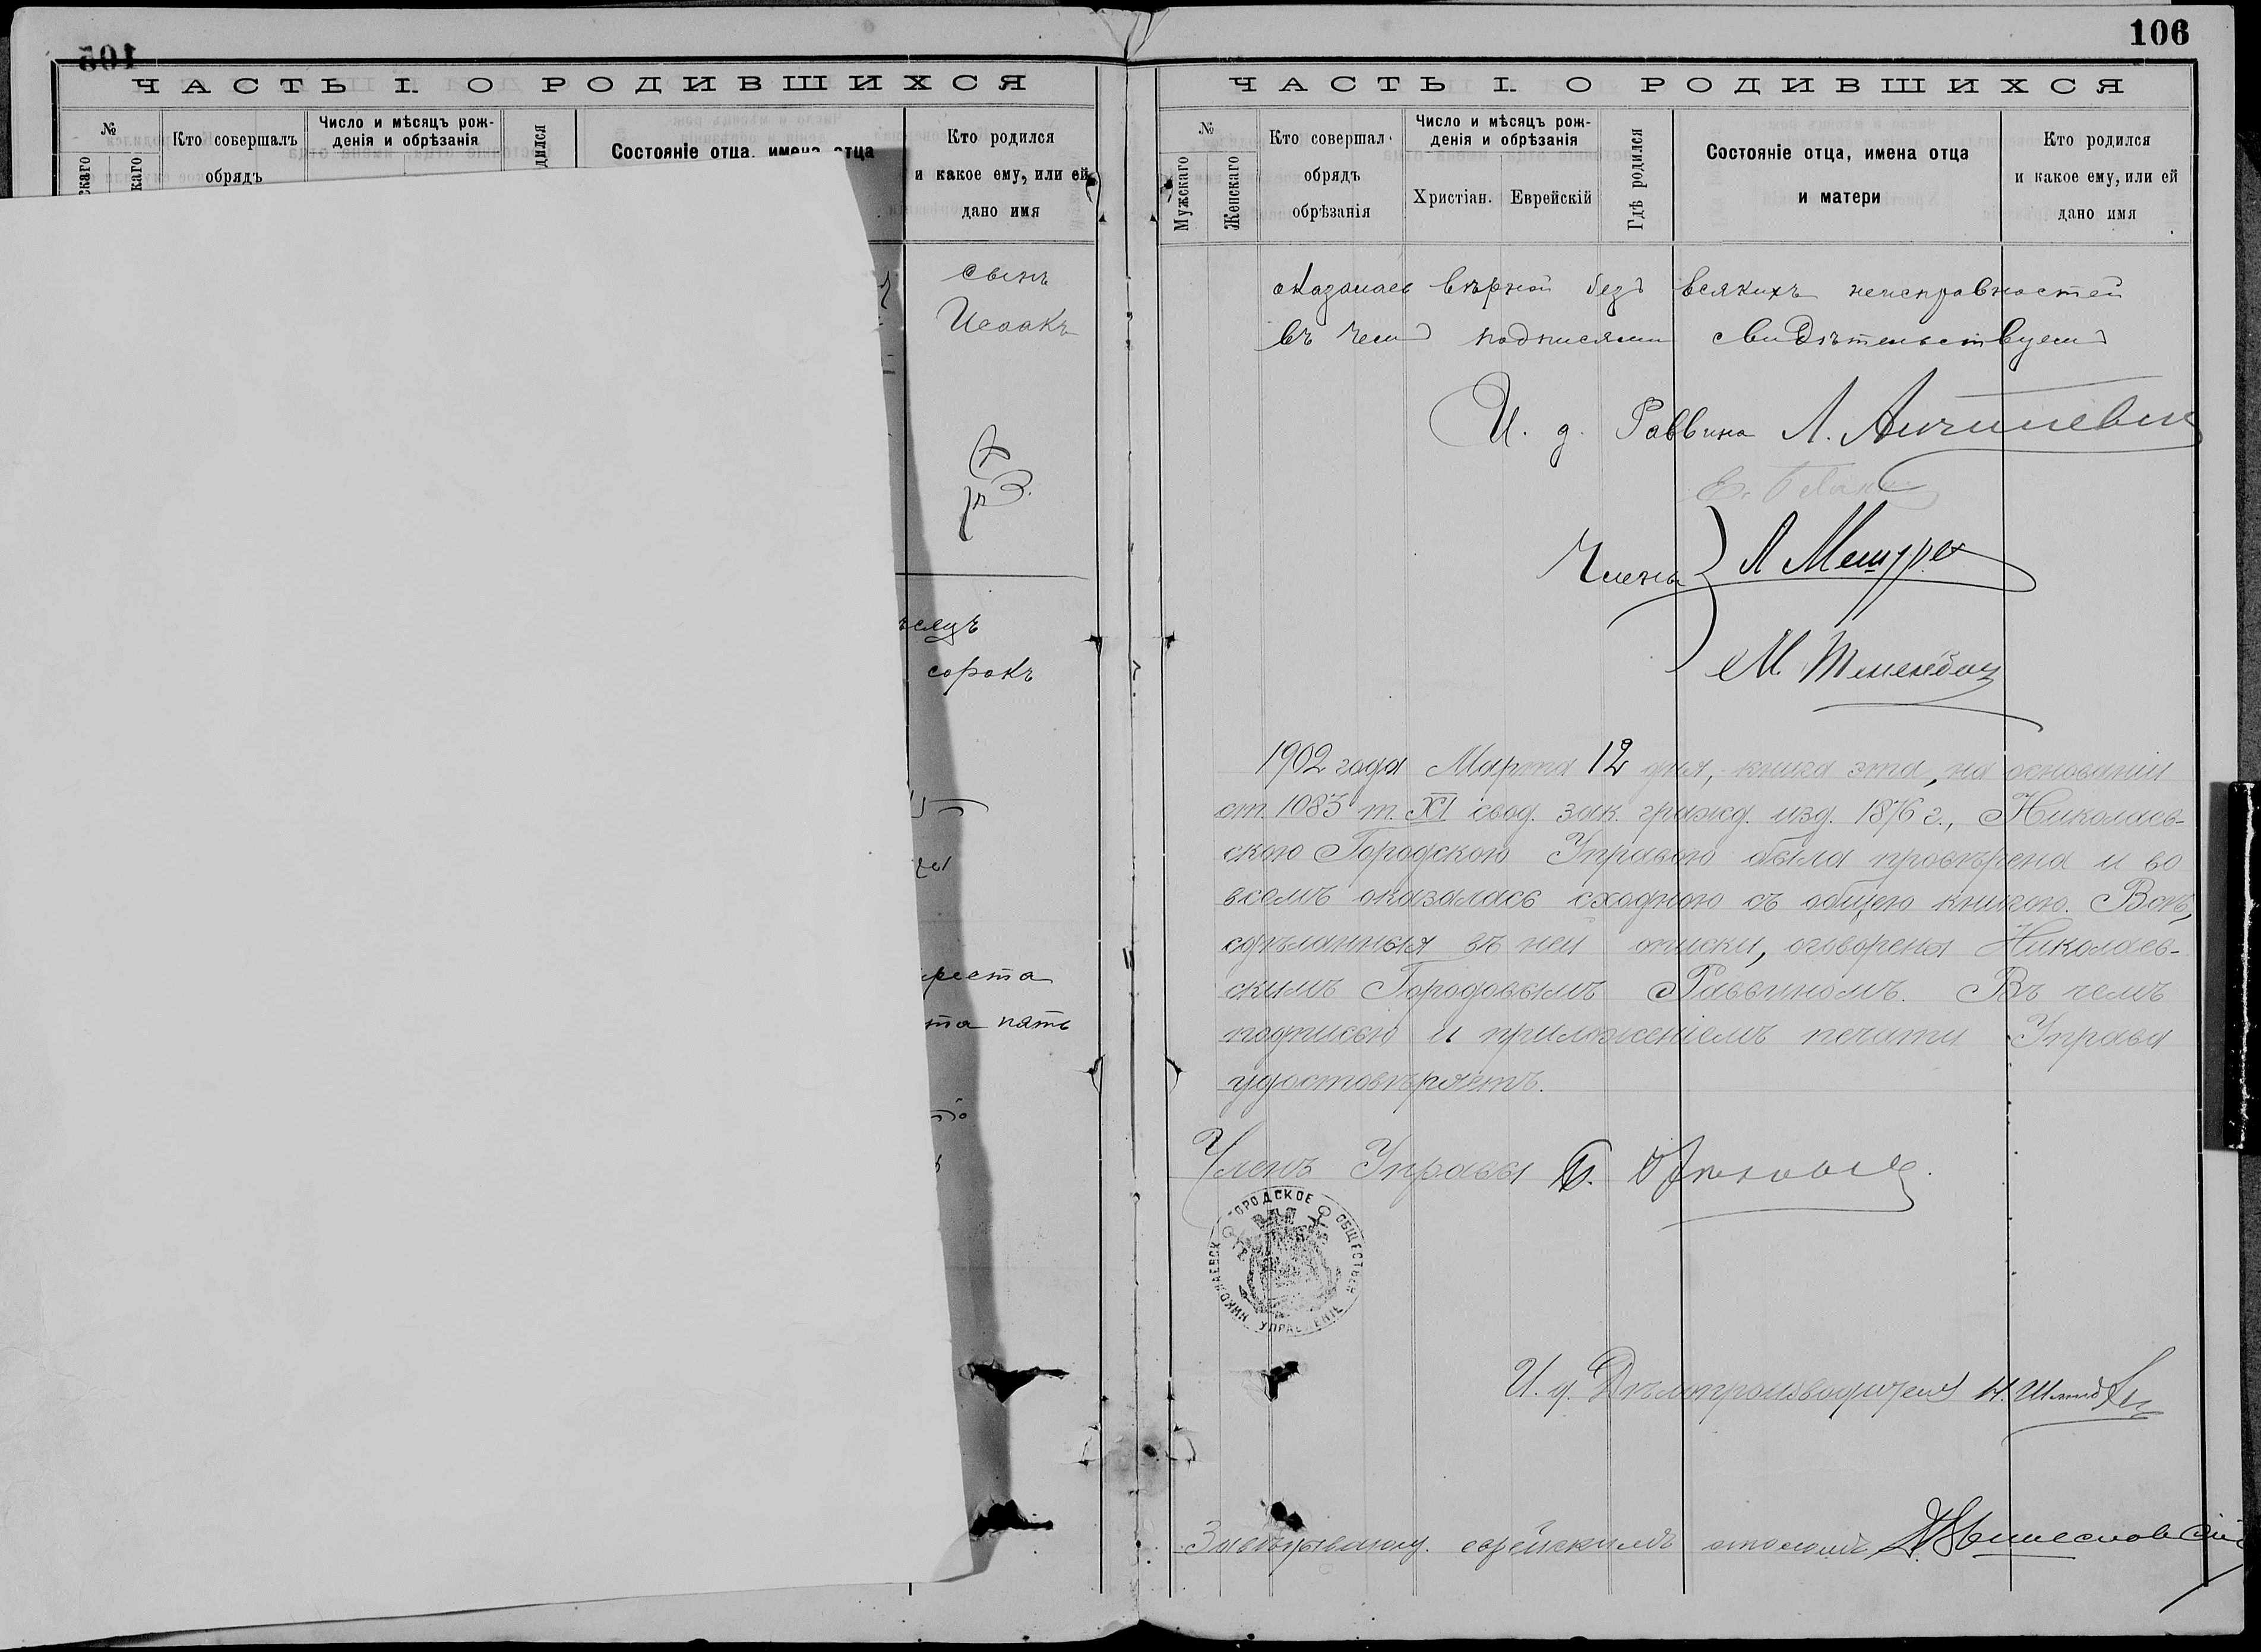 105
ЧАСТЬ I. О РОДИВШИХСЯ
№
Кто совершалъ
обрядъ
Число и мѣсяцъ рож-
денія и обрѣзанія
Состояніе отца, имена отца
Кто родился
и какое ему, или ей
дано имя
сынъ
Исаакъ
сорокъ
пять
106
ЧАСТЬ I. О РОДИВШИХСЯ
№
Мужскаго
Женскаго
Кто совершал
обрядъ
обрѣзанія
Число и мѣсяцъ рож-
денія и обрѣзанія
Христіан. Еврейскій
Гдѣ родился
Состояніе отца, имена отца
и матери
Кто родился
и какое ему, или ей
дано имя
оказалась вѣрной безъ всякихъ неисправностей
въ чемъ подписями свидѣтельствуемъ
И. д. Раввина Л.
Члены
М.
1902 года Марта 12 дня, книга эта, на основаніи
ст. 1083 т. XI свод. зак. гражд. изд. 1876 г., Николаев-
скою Городскою Управою была провѣрена и во
всемъ оказалась сходною съ общею книгою. Всѣ,
сдѣланныя въ ней описки, оговорены Николаев-
скимъ Городовымъ Раввиномъ. Въ чемъ
подписью и приложеніемъ печати Управа
удостовѣряетъ.
Членъ Управы
НИКОЛАЕВСК ГОРОДСКОЕ ОБЩЕСТВЕН УПРАВЛЕНІЕ
И. д. Дѣлопроизводителя Н.
Завѣдывающ. еврейскимъ столомъ